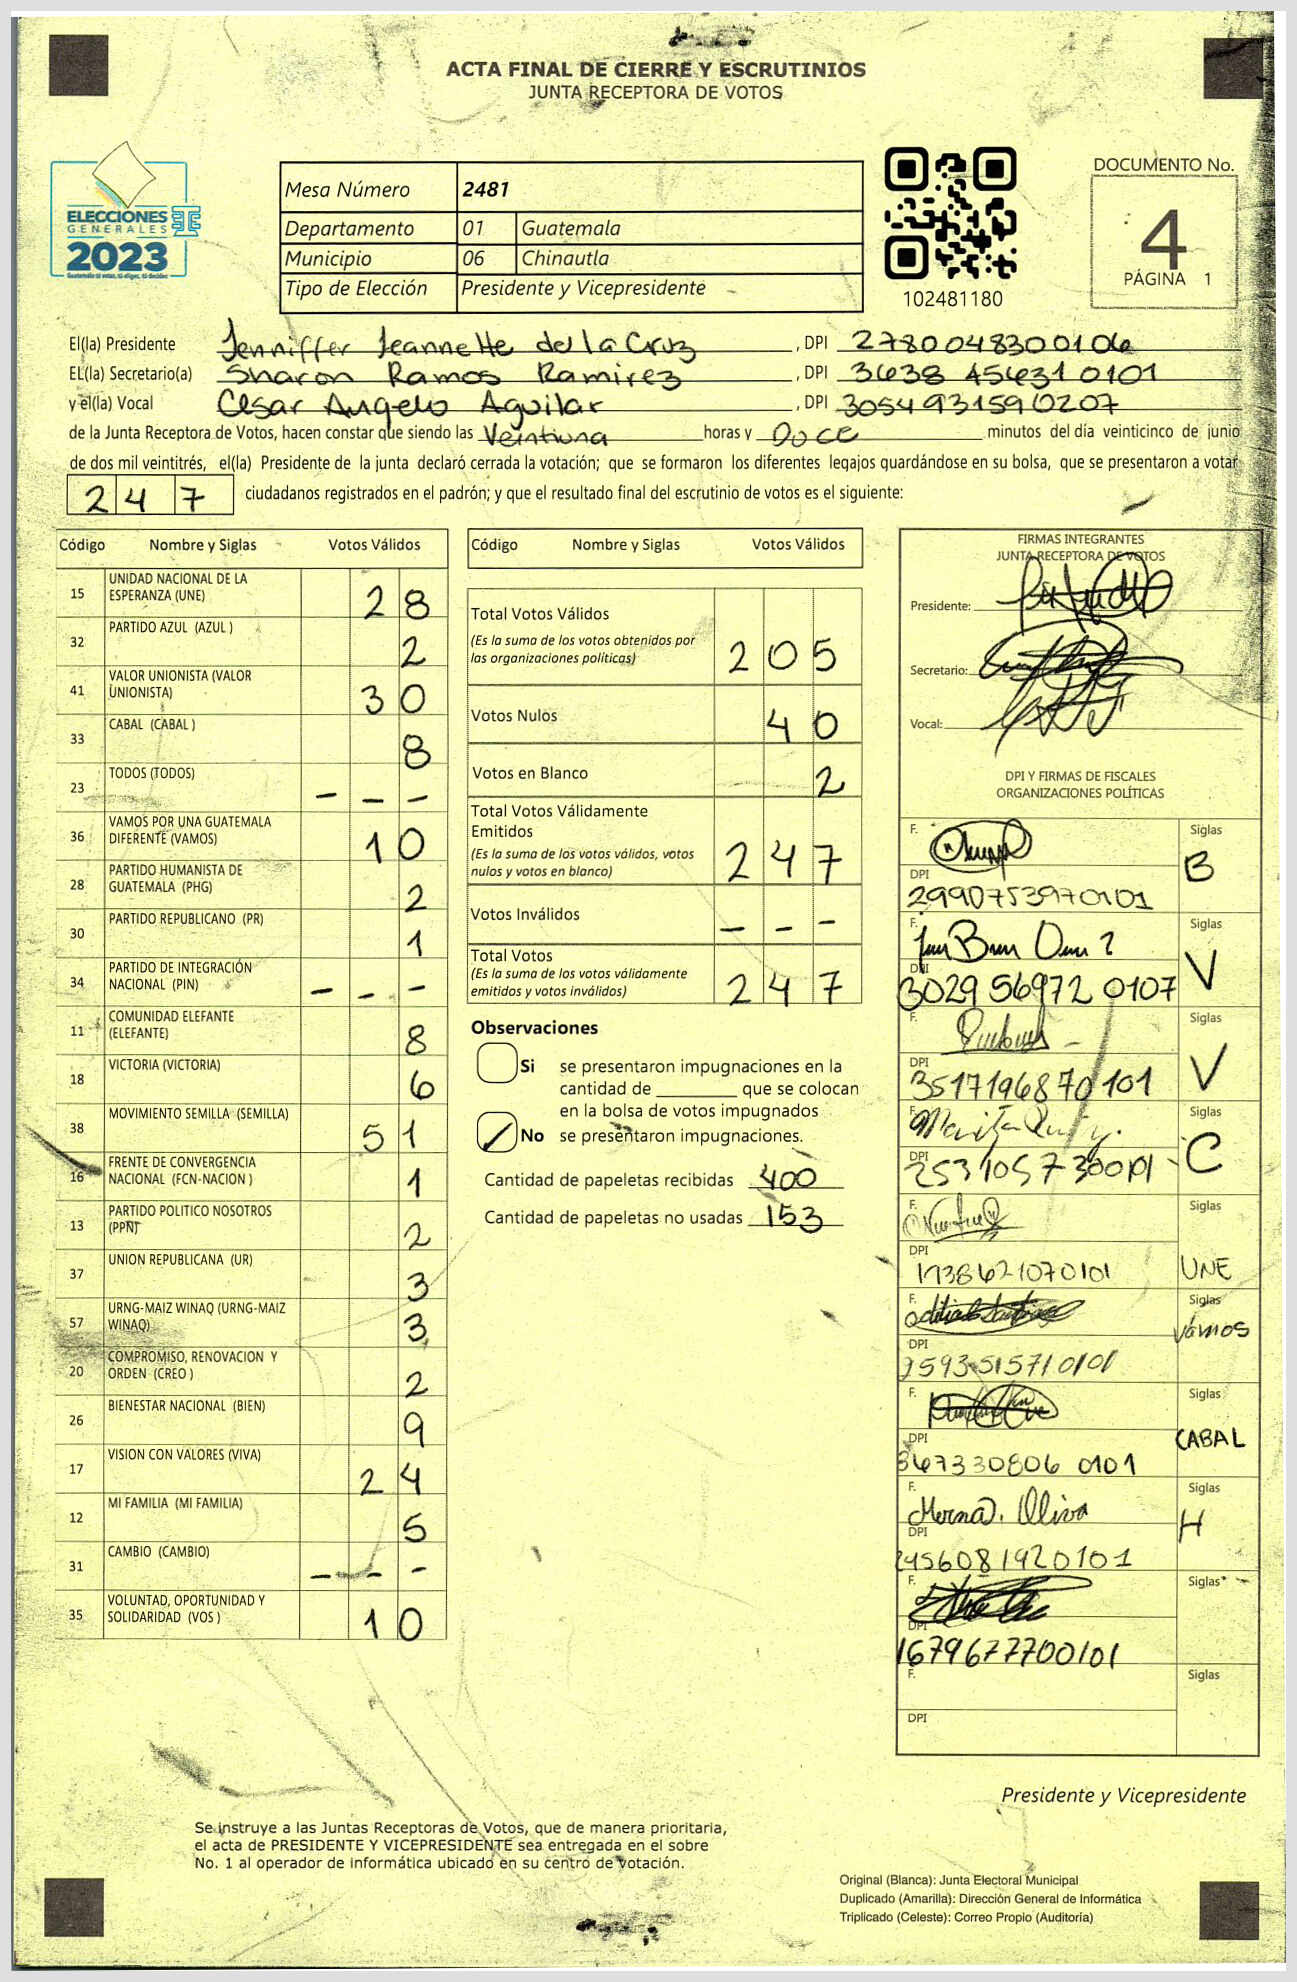 ACTA FINAL DE CIERRE Y ESCRUTINIOS
JUNTA RECEPTORA DE VOTOS
ELECCIONES
GENERALES
2023
Mesa Número 2481
Departamento 01 Guatemala
Municipio 06 Chinautla
Tipo de Elección Presidente y Vicepresidente
102481180
DOCUMENTO No.
4
PÁGINA 1
El(la) Presidente Jenniffer Jeannette de la Cruz , DPI 2780048300106
EL(la) Secretario(a) Sharon Ramos Ramirez , DPI 3638 456310101
y el(la) Vocal Cesar Angelo Aguilar , DPI 3054931590207
de la Junta Receptora de Votos, hacen constar que siendo las Veintiuna horas y Doce minutos del día veinticinco de junio
de dos mil veintitrés, el(la) Presidente de la junta declaró cerrada la votación; que se formaron los diferentes legajos guardándose en su bolsa, que se presentaron a votar
247 ciudadanos registrados en el padrón; y que el resultado final del escrutinio de votos es el siguiente:
Código Nombre y Siglas Votos Válidos
15 UNIDAD NACIONAL DE LA ESPERANZA (UNE) 28
32 PARTIDO AZUL (AZUL ) 2
41 VALOR UNIONISTA (VALOR UNIONISTA) 30
33 CABAL (CABAL ) 8
23 TODOS (TODOS) - - -
36 VAMOS POR UNA GUATEMALA DIFERENTE (VAMOS) 10
28 PARTIDO HUMANISTA DE GUATEMALA (PHG) 2
30 PARTIDO REPUBLICANO (PR) 1
34 PARTIDO DE INTEGRACIÓN NACIONAL (PIN) - - -
11 COMUNIDAD ELEFANTE (ELEFANTE) 8
18 VICTORIA (VICTORIA) 6
38 MOVIMIENTO SEMILLA (SEMILLA) 51
16 FRENTE DE CONVERGENCIA NACIONAL (FCN-NACION ) 1
13 PARTIDO POLITICO NOSOTROS (PPN) 2
37 UNION REPUBLICANA (UR) 3
57 URNG-MAIZ WINAQ (URNG-MAIZ WINAQ) 3
20 COMPROMISO, RENOVACION Y ORDEN (CREO ) 2
26 BIENESTAR NACIONAL (BIEN) 9
17 VISION CON VALORES (VIVA) 24
12 MI FAMILIA (MI FAMILIA) 5
31 CAMBIO (CAMBIO) - - -
35 VOLUNTAD, OPORTUNIDAD Y SOLIDARIDAD (VOS ) 10
Código Nombre y Siglas Votos Válidos
Total Votos Válidos 205
(Es la suma de los votos obtenidos por
las organizaciones políticas)
Votos Nulos 40
Votos en Blanco 2
Total Votos Válidamente
Emitidos 247
(Es la suma de los votos válidos, votos
nulos y votos en blanco)
Votos Inválidos - - -
Total Votos 247
(Es la suma de los votos válidamente
emitidos y votos inválidos)
Observaciones
Si se presentaron impugnaciones en la
cantidad de ________ que se colocan
en la bolsa de votos impugnados
No se presentaron impugnaciones.
Cantidad de papeletas recibidas 400
Cantidad de papeletas no usadas 153
FIRMAS INTEGRANTES
JUNTA RECEPTORA DE VOTOS
Presidente:
Secretario:
Vocal:
DPI Y FIRMAS DE FISCALES
ORGANIZACIONES POLÍTICAS
F. Siglas B
DPI 2990753970101
F. Siglas V
DPI 3029 56972 0107
F. Siglas V
DPI 3517196870101
F. Siglas C
DPI
F. Siglas UNE
DPI 1738621070101
F. Siglas Vamos
DPI 2593515710101
F. Siglas CABAL
DPI 367330806 0101
F. Myrna. Oliva Siglas H
DPI 2456081920101
F. Siglas
DPI 1679677700101
F. Siglas
DPI
Presidente y Vicepresidente
Se instruye a las Juntas Receptoras de Votos, que de manera prioritaria,
el acta de PRESIDENTE Y VICEPRESIDENTE sea entregada en el sobre
No. 1 al operador de informática ubicado en su centro de votación.
Original (Blanca): Junta Electoral Municipal
Duplicado (Amarilla): Dirección General de Informática
Triplicado (Celeste): Correo Propio (Auditoría)